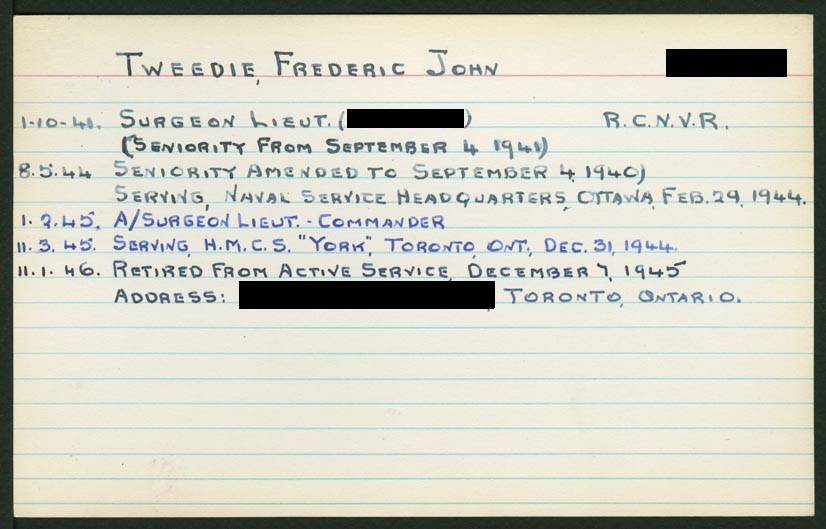 TWEEDIE, FREDERIC JOHN
1-10-41. SURGEON LIEUT. ( ) R.C.N.V.R.
(SENIORITY FROM SEPTEMBER 4 1941)
8.5.44 SENIORITY AMENDED TO SEPTEMBER 4, 1940)
SERVING, NAVAL SERVICE HEADQUARTERS, OTTAWA, FEB. 29, 1944.
1. 2. 45. A/SURGEON LIEUT. - COMMANDER
11. 3. 45. SERVING, H.M.C.S. "YORK", TORONTO, ONT., DEC. 31, 1944.
11. 1. 46. RETIRED FROM ACTIVE SERVICE, DECEMBER 7, 1945
ADDRESS: , TORONTO, ONTARIO.